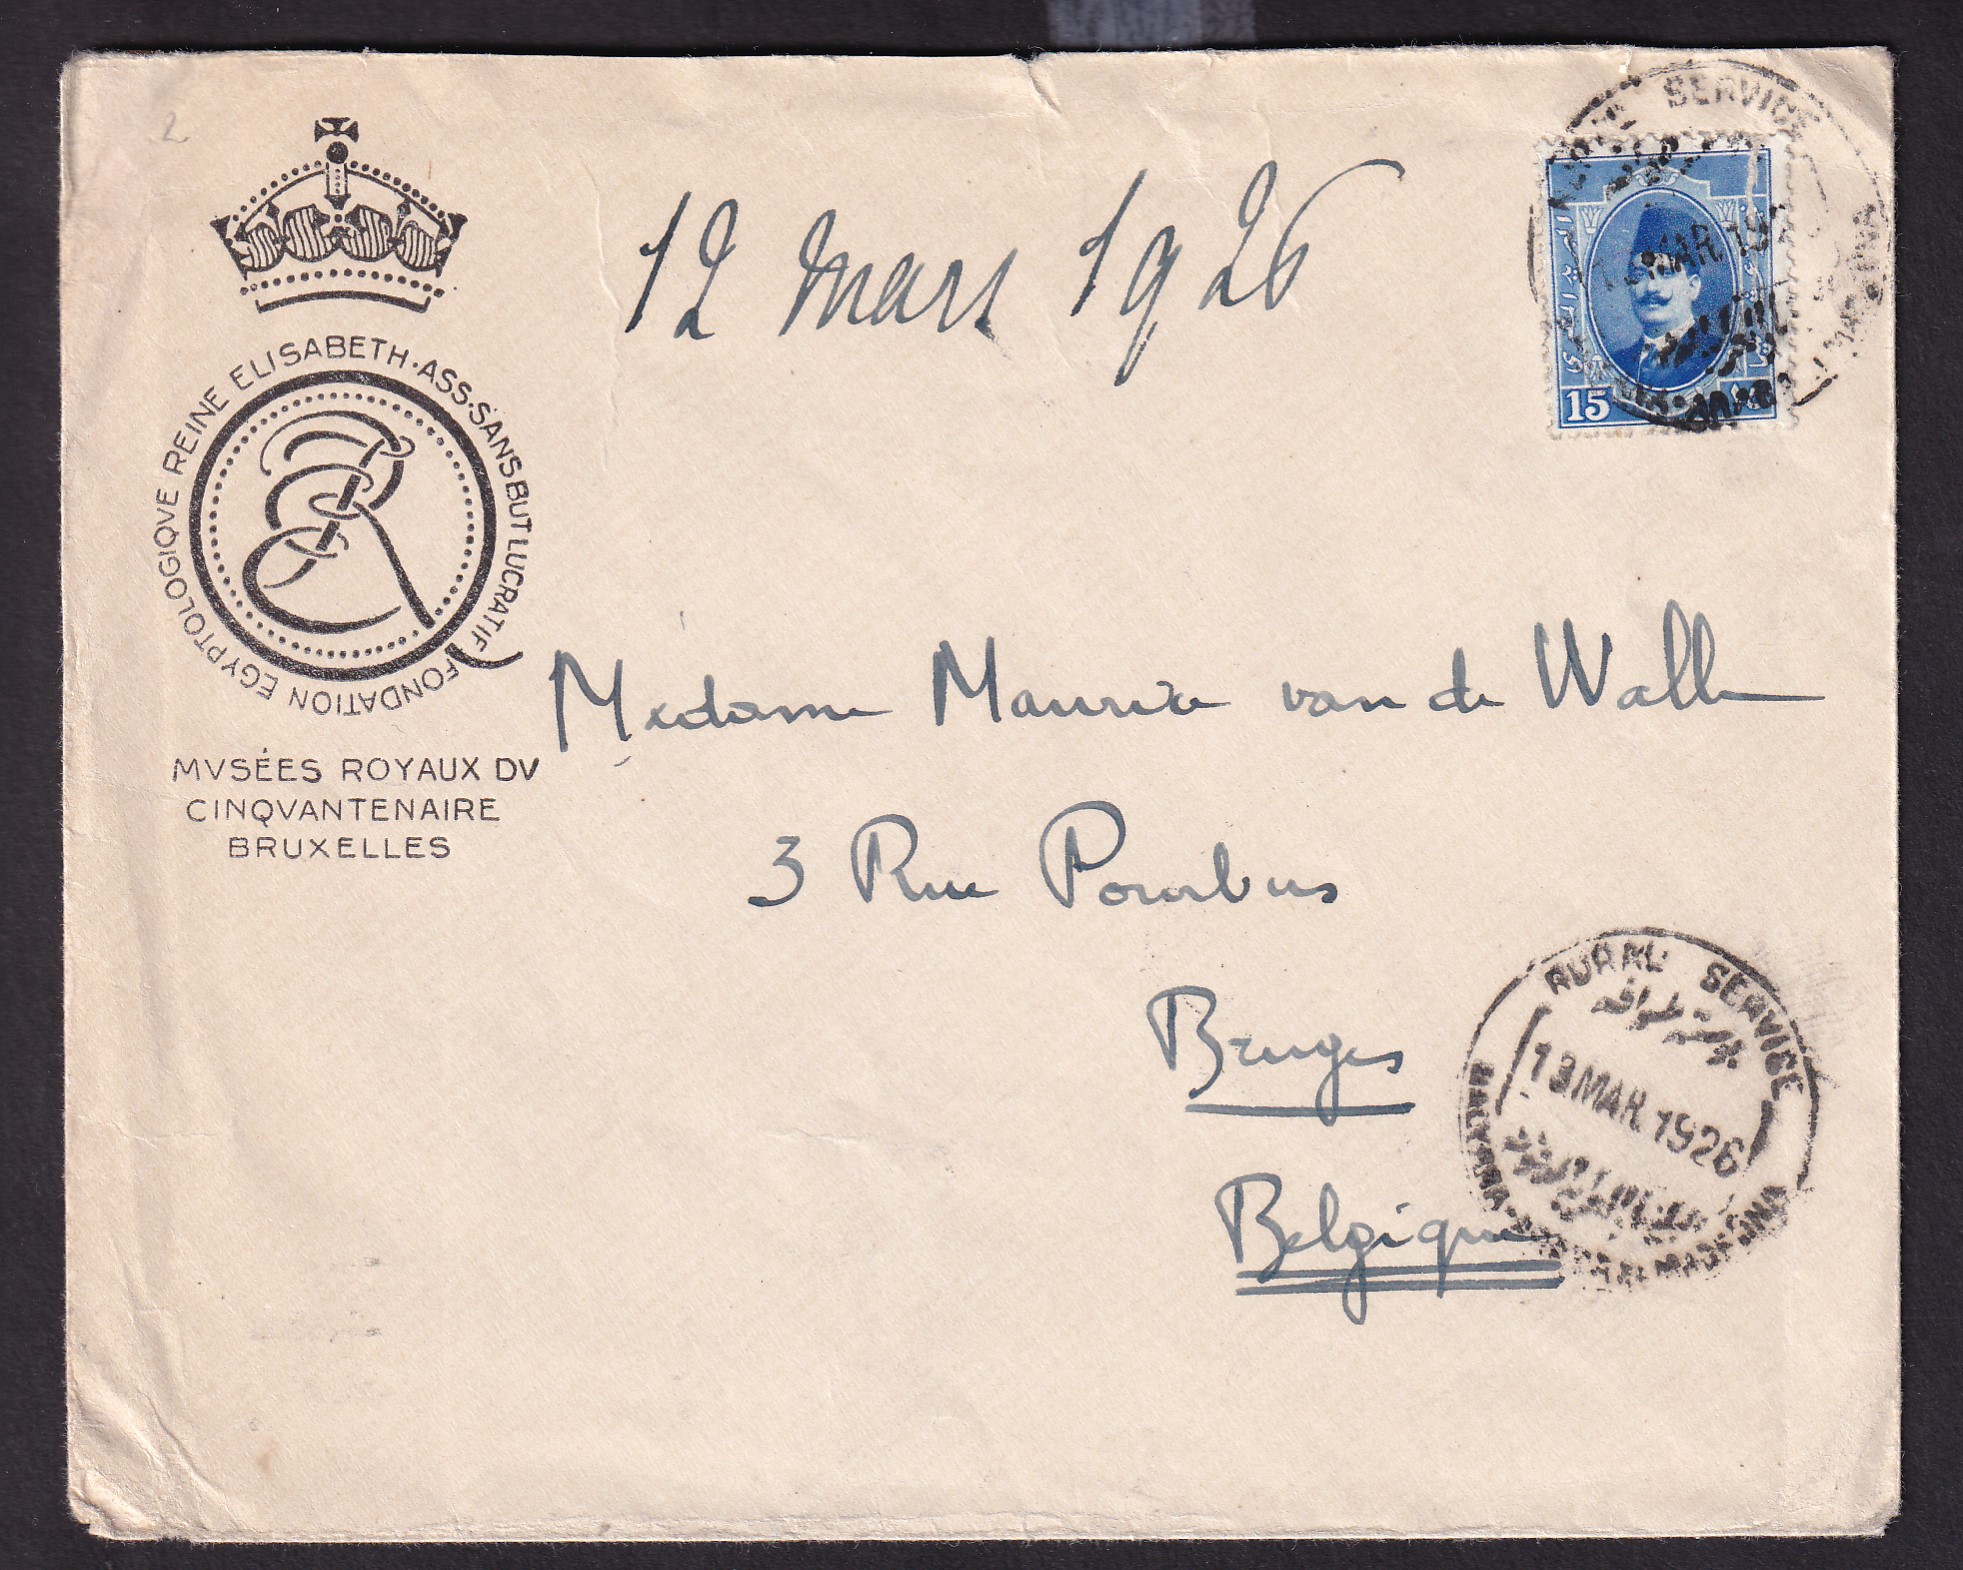 2
FONDATION EGYPTOLOGIQVE REINE ELISABETH · ASS·SANS BUT LUCRATIF
MVSÉES ROYAUX DV
CINQVANTENAIRE
BRUXELLES
12 mars 1926
SERVICE
MAR. 19
15
Madame Maurice van de Walle
3 Rue Pourbus
Bruges
Belgique
RURAL SERVICE
13 MAR. 1926